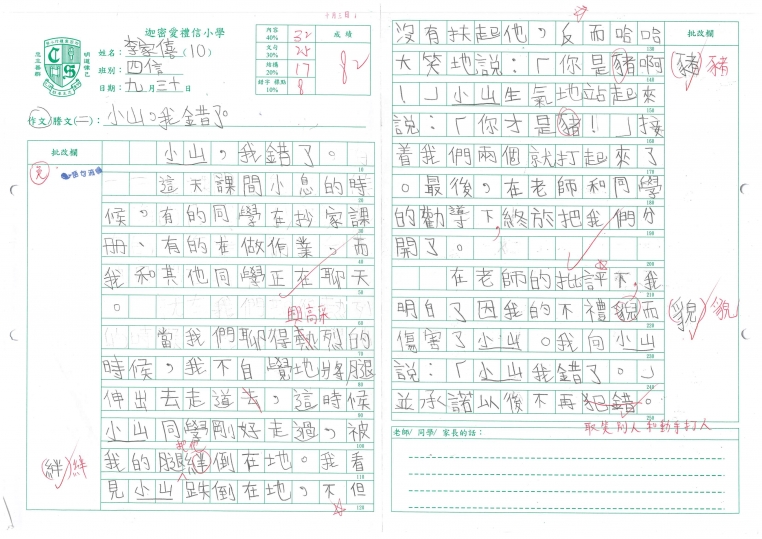 十月三日
迦密愛禮信小學
明道律己
忠主善群
姓名：李家僖(10)
班別：四信
日期：九月三十日
內容 40% 32
文句 30% 25
結構 20% 17
錯字 標點 10% 8
成績
82
作文/謄文(二)：小山，我錯了。
批改欄
小山，我錯了。
這天課間小息的時
候，有的同學在抄家課
冊、有的在做作業，而
我和其他同學正在聊天
。
興高采
當我們聊得熱烈的
時候，我不自覺地將腿
伸出去走道去，這時候
小山同學剛好走過，被
我的腿絆倒在地。我看
(絆) 絆
見小山跌倒在地，不但
批改欄
沒有扶起他，反而哈哈
大笑地說：「你是豬啊
(豬) 豬
！」小山生氣地站起來
說：「你才是豬！」接
着我們兩個就打起來了
。最後，在老師和同學
的勸導下，終於把我們分
開了。
在老師的批評下，我
明白了因我的不禮貌而
(貌) 貌
傷害了小山。我向小山
說：「小山我錯了。」
並承諾以後不再犯錯。
取笑別人和動手打人
老師/ 同學/ 家長的話：